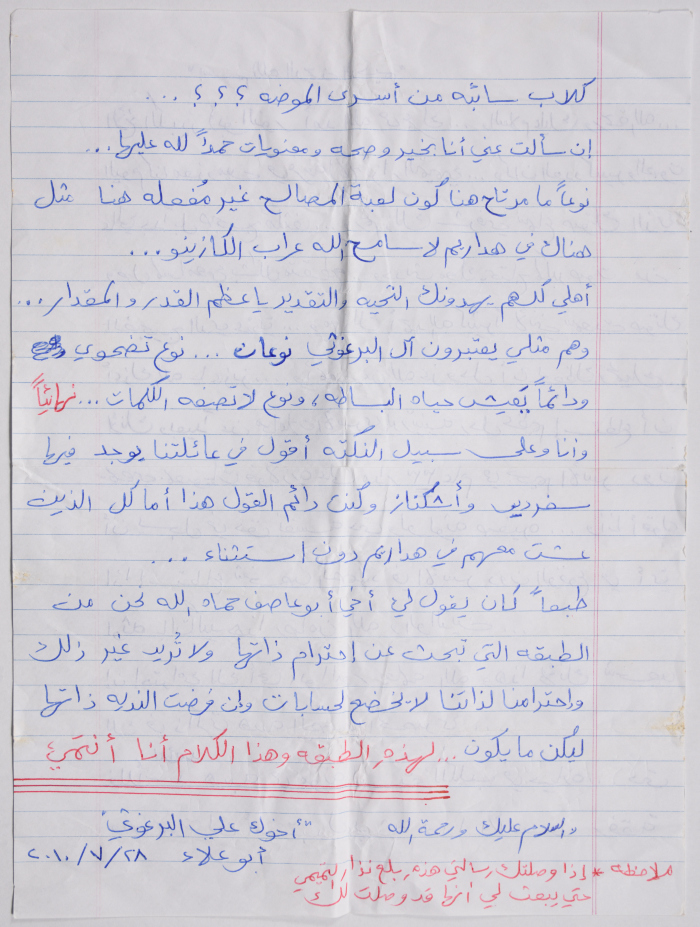 كلاب سائبه من أسرى الموضه ؟؟؟...
إن سألت عني أنا بخير وصحه ومعنويات حمداً لله عليها...
نوعاً ما مرتاح هنا كون لعبة المصالح غير مُفعله هنا مثل
هناك في هداريم لا سامح الله عراب الكازينو...
أهلي كلهم يهدونك التحيه والتقدير يا عظم القدر والمقدار...
وهم مثلي يعتبرون آل البرغوثي نوعان ... نوع تضحوي
ودائماً يَعيش حياه البساطه، ونوع لا تصفه الكلمات... نهائياً
وأنا وعلى سبيل النكته أقول في عائلتنا يوجد فيها
سفرديم وأشكناز وكنت دائم القول هذا أمام كل الذين
عشت معهم في هداريم دون استثناء ...
طبعاً كان يقول لي أخي أبو عاصف حماه الله نحن من
الطبقه التي تبحث عن إحترام ذاتها ولا تُريد غير ذلك
وإحترامنا لذاتنا لا يخضع لحسابات وإن فرضت النديه ذاتها
ليُكن ما يكون ... لهذهِ الطبقه وهذا الكلام أنا أنتمي
والسلام عليك ورحمة الله "أخوك علي البرغوثي"
أبو علاء ٢٠١٠/٧/٢٨
ملاحظه * إذا وصلتك رسالتي هذه بلغ نزار التميمي
حتى يبعث لي أنها قد وصلت لك